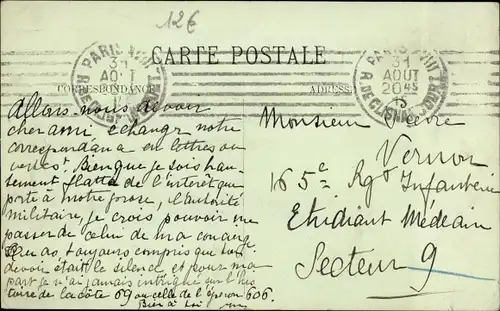 12€
CARTE POSTALE
CORRESPONDANCE
ADRESSE
PARIS
31
AOUT
R DE CLIGNANCOURT
PARIS
31
AOUT
20 45
15
R DE CLIGNANCOURT
Allons nous devoir
cher ami échanger notre
correspondance en lettres ou
vertes? Bien que je sois hau-
tement flatté de l'intérêt que
porte à notre prose, l'autorité
militaire, je crois pouvoir me
passer de celui de ma concierge
toujours compris que
devoir était le silence et pour ma
part je n'ai jamais intrigué sur l'his
toire de la côte 69 ou celle de l'éperon 606.
Bien à toi
Monsieur Pierre
Vernon
165e Rgt Infanterie
Etudiant Médecin
Secteur 9